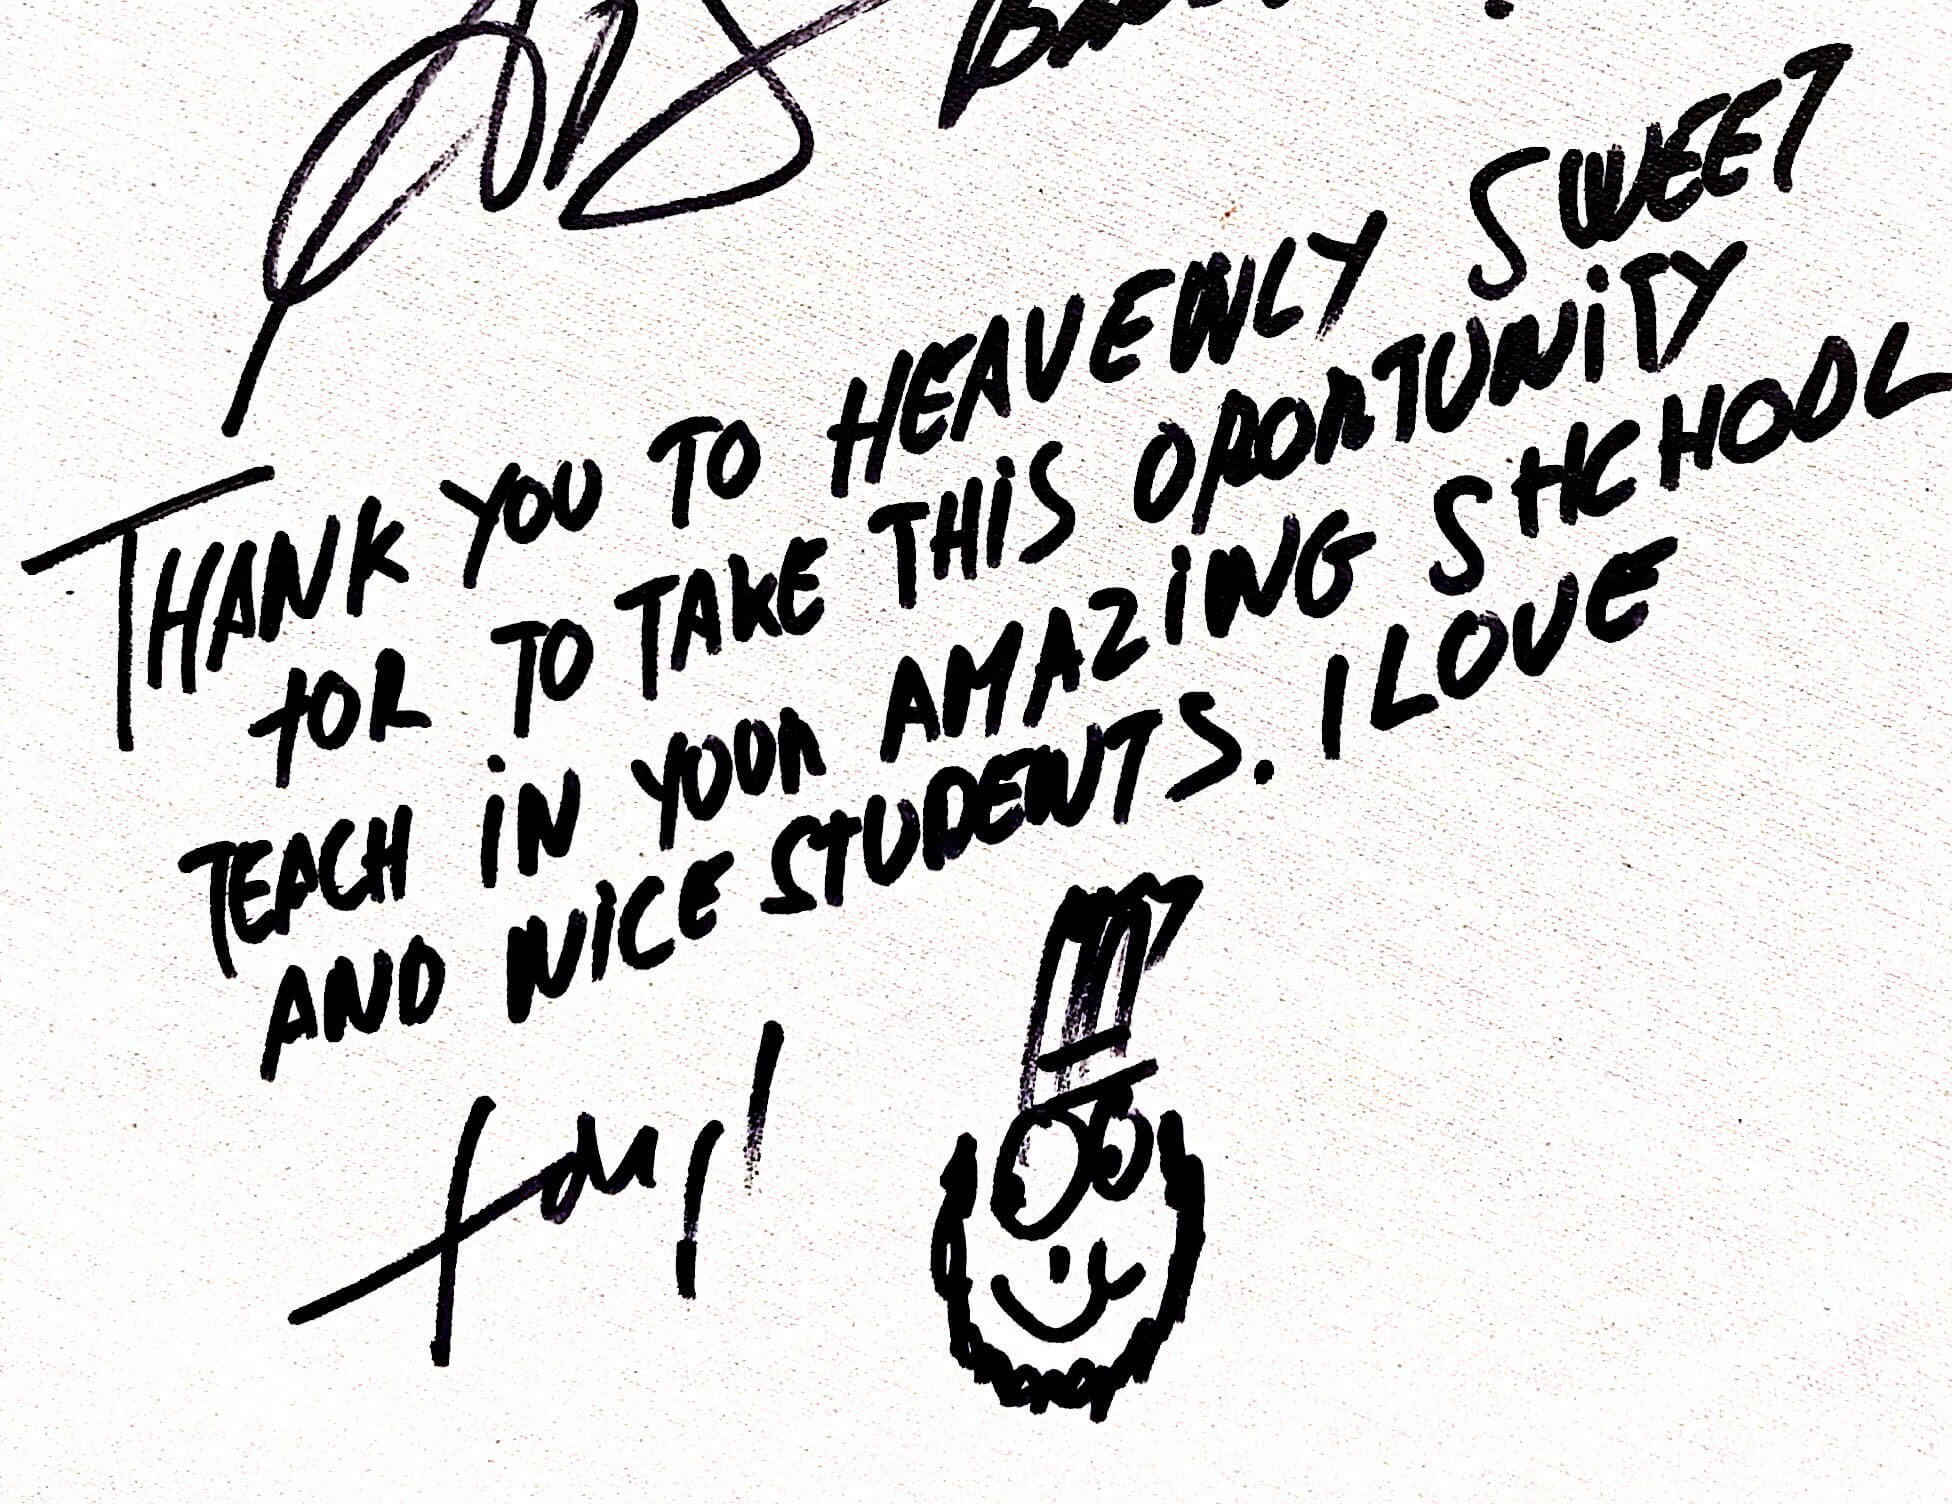 THANK YOU TO HEAVENLY SWEET
FOR TO TAKE THIS OPORTUNITY
TEACH IN YOUR AMAZING SHCHOOL
AND NICE STUDENTS. I LOVE